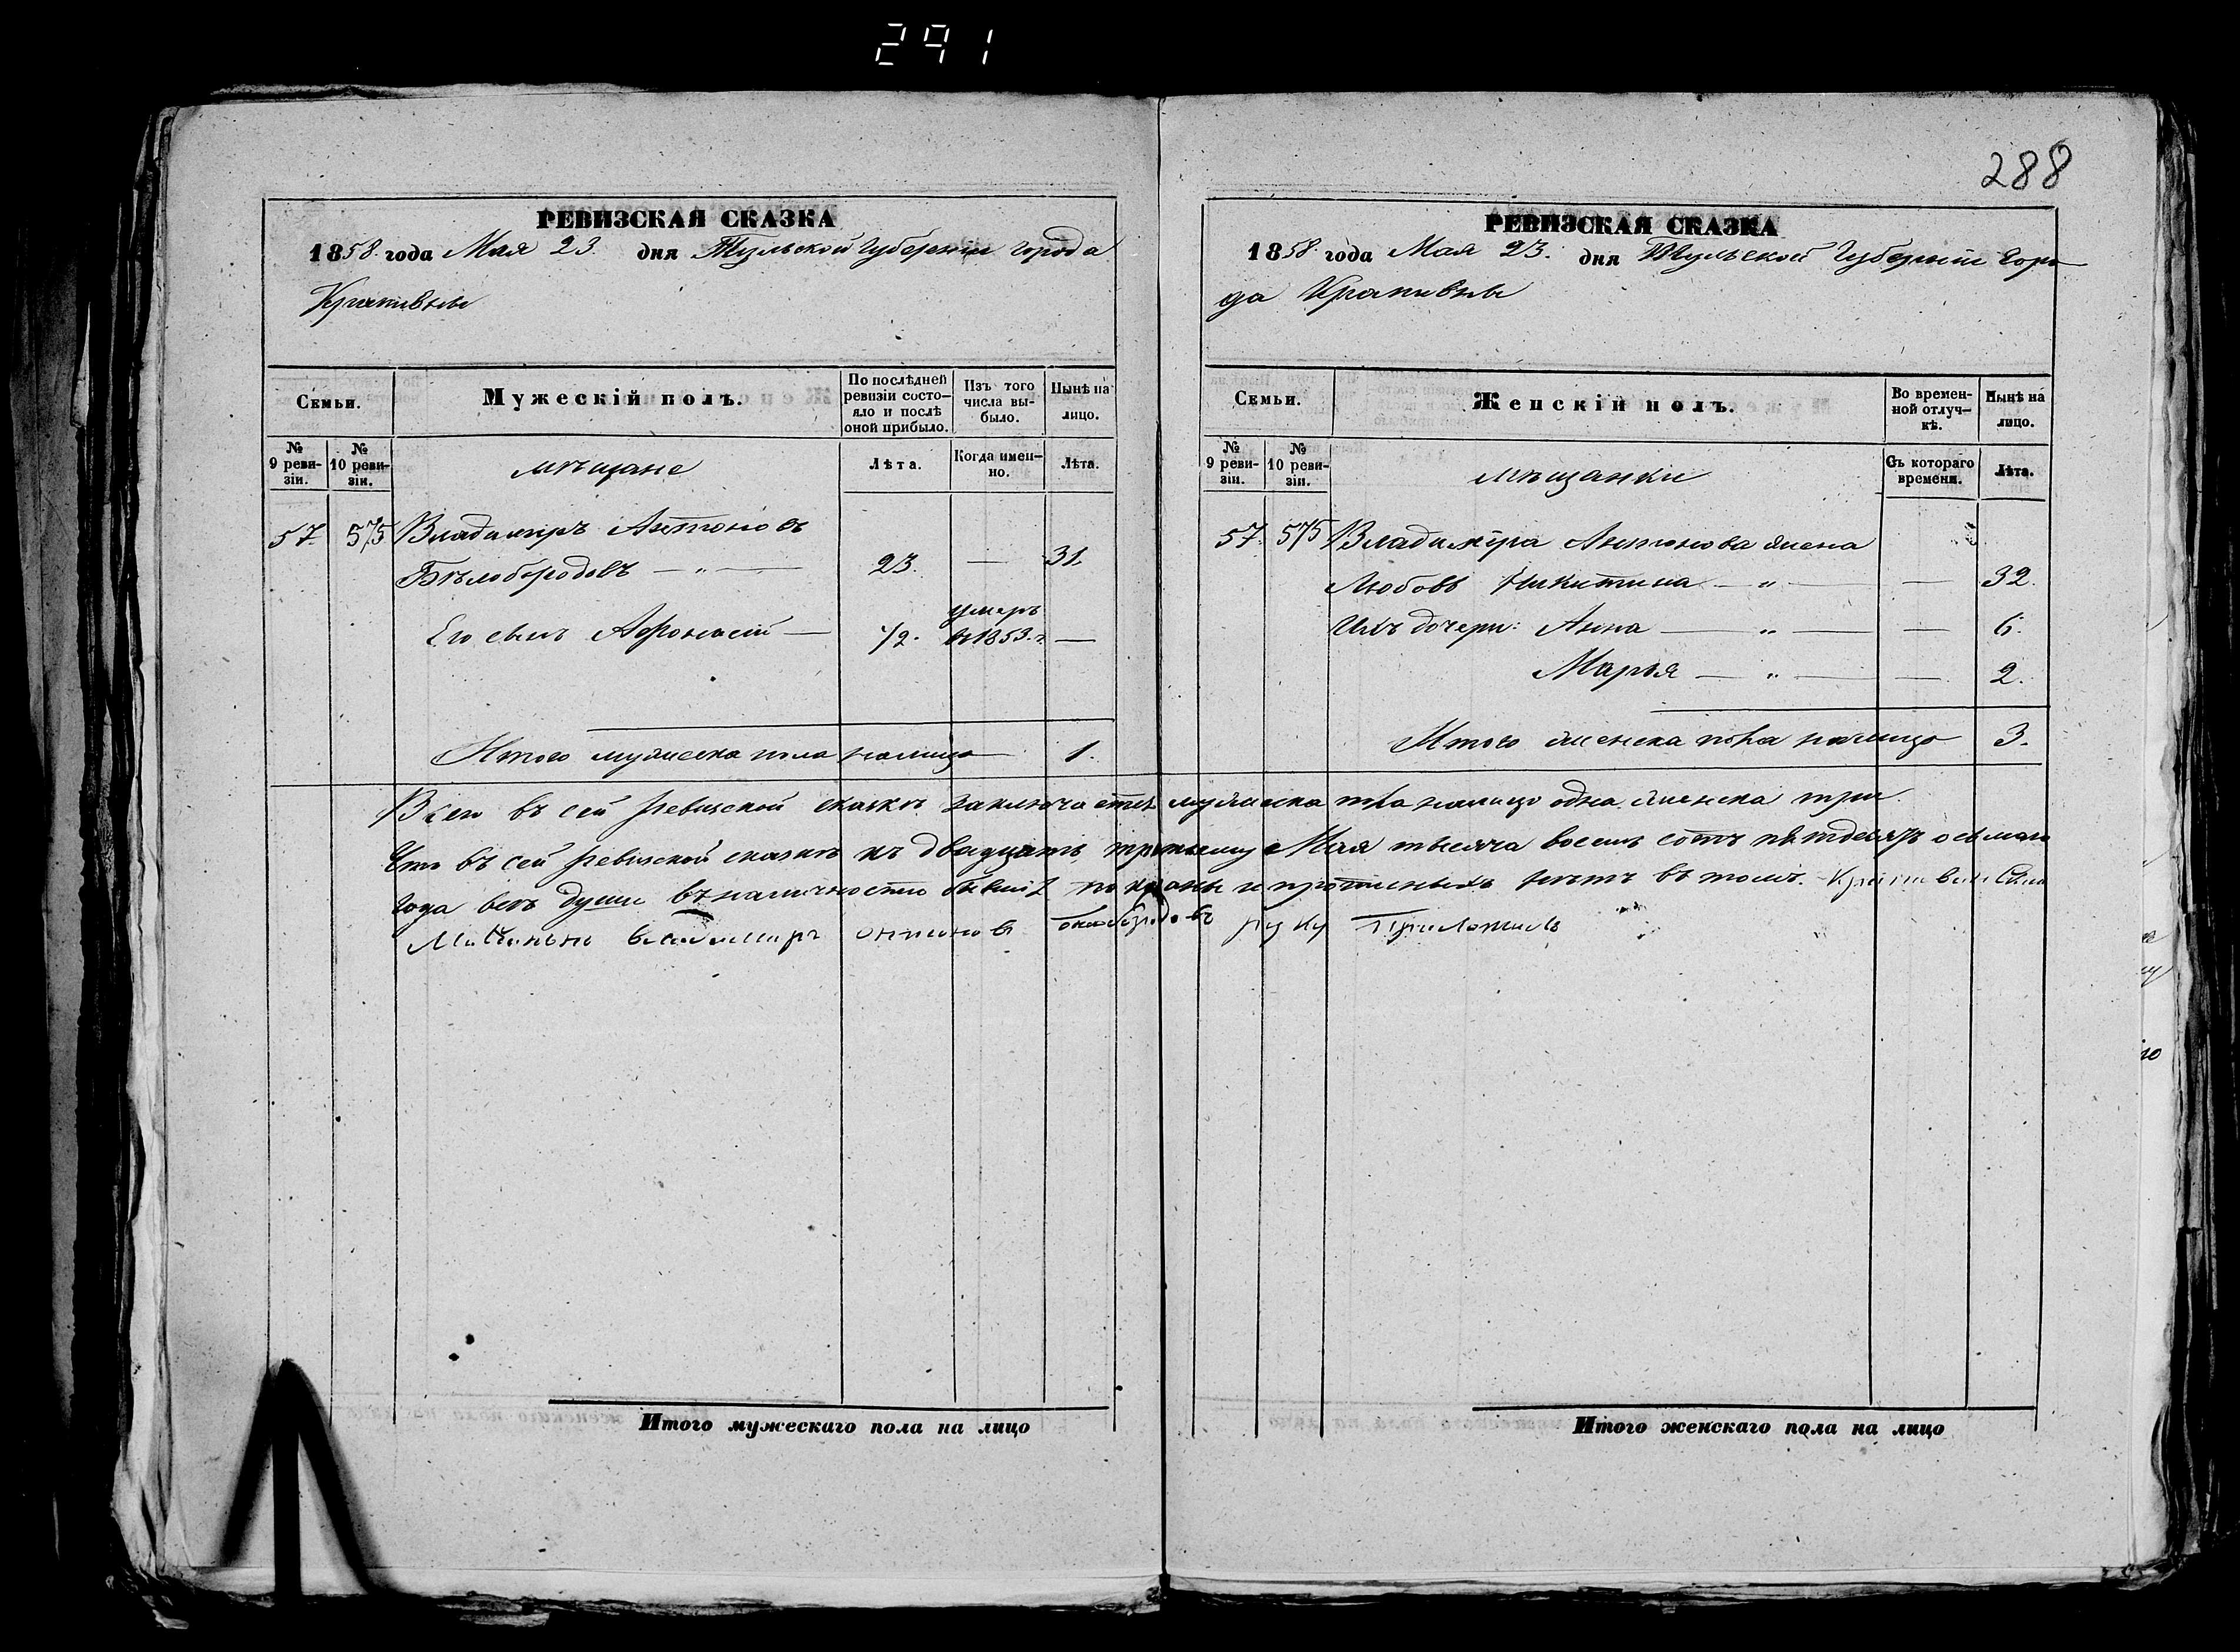 291
288
РЕВИЗСКАЯ СКАЗКА
1858 года Мая 23. дня Тульской Губерніи города
Крапивны
Семьи.
Мужескій полъ.
По послѣдней ревизіи состояло и послѣ оной прибыло.
Изъ того числа выбыло.
Нынѣ на лицо.
№ 9 ревизіи.
№ 10 ревизіи.
мѣщане
Лѣта.
Когда именно.
Лѣта.
57. 575 Владимиръ Антоновъ
Бѣлобородовъ — „ — 23. — 31.
Его сынъ Афонасій — 1/2. умеръ въ 1853. г. —
Итого мужеска пола налицо 1.
РЕВИЗСКАЯ СКАЗКА
1858 года Мая 23. дня Тульской Губерніи Горо
да Крапивны
Семьи.
Женскій полъ.
Во временной отлучкѣ.
Нынѣ на лицо.
№ 9 ревизіи.
№ 10 ревизіи.
мѣщанки
Съ котораго времени.
Лѣта.
57. 575 Владиміра Антонова жена
Любовь Никитина — „ — — 32.
Ихъ дочери: Анна — „ — — 6.
Марья — „ — — 2.
Итого женска пола налицо 3.
Всего въ сей ревизской сказкѣ заключается мужеска пола налицо одна женска три.
Что въ сей ревизской сказкѣ къ двадцать третьему Мая тысяча восемь сотъ пятдесятъ осьмаго
года всѣ души въ наличности бывшія показаны и прописныхъ нѣтъ въ томъ. Крапивенской
Мещенинъ владимиръ онтоновъ белобородовъ руку Приложилъ
Итого мужескаго пола на лицо
Итого женскаго пола на лицо